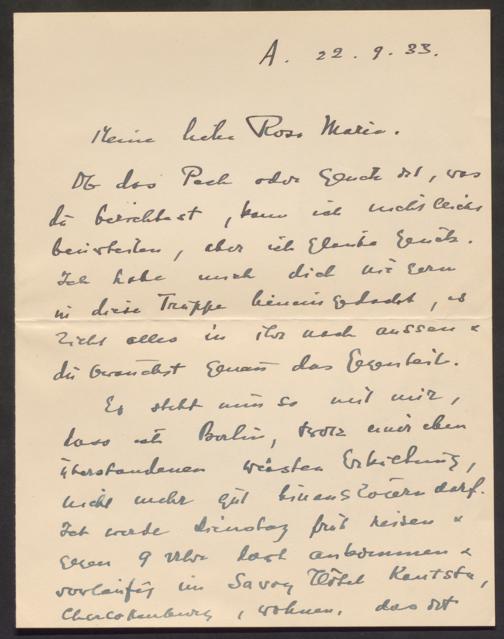 A. 22.9.33.
Meine liebe Rosa Maria.
Ob das Pech oder Glück ist, was
du berichtest, kann ich nicht leicht
beurteilen, aber ich glaube Glück.
Ich habe mich dich nie gern
in diese Truppe hineingedacht, es
zieht alles in ihr nach aussen &
du brauchst genau das Gegenteil.
Es steht nun so mit mir,
dass ich Berlin, trotz einer eben
überstandenen wüsten Erkältung,
nicht mehr gut hinauszögern darf.
Ich werde Dienstag früh reisen &
gegen 9 Uhr dort ankommen &
vorläufig im Savoy Hôtel Kantstr,
Charlottenburg, wohnen. das ist